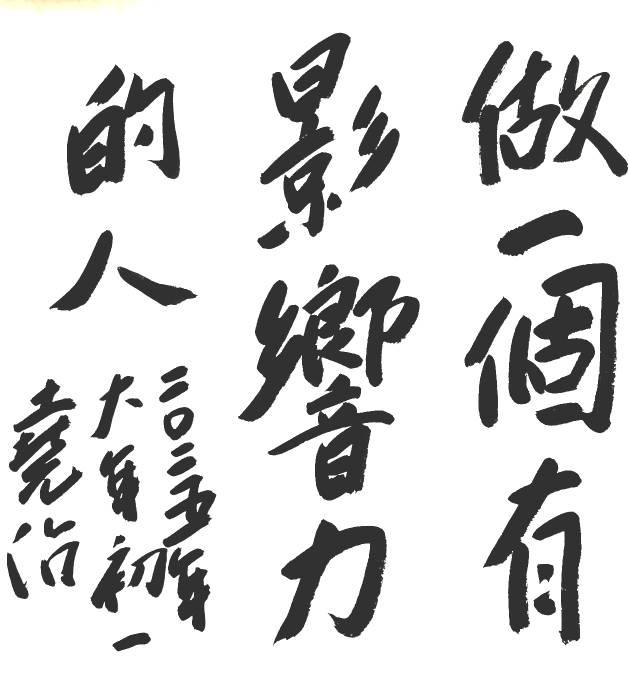 做一個有
影響力
的人
二〇二五年
大年初一
堯治